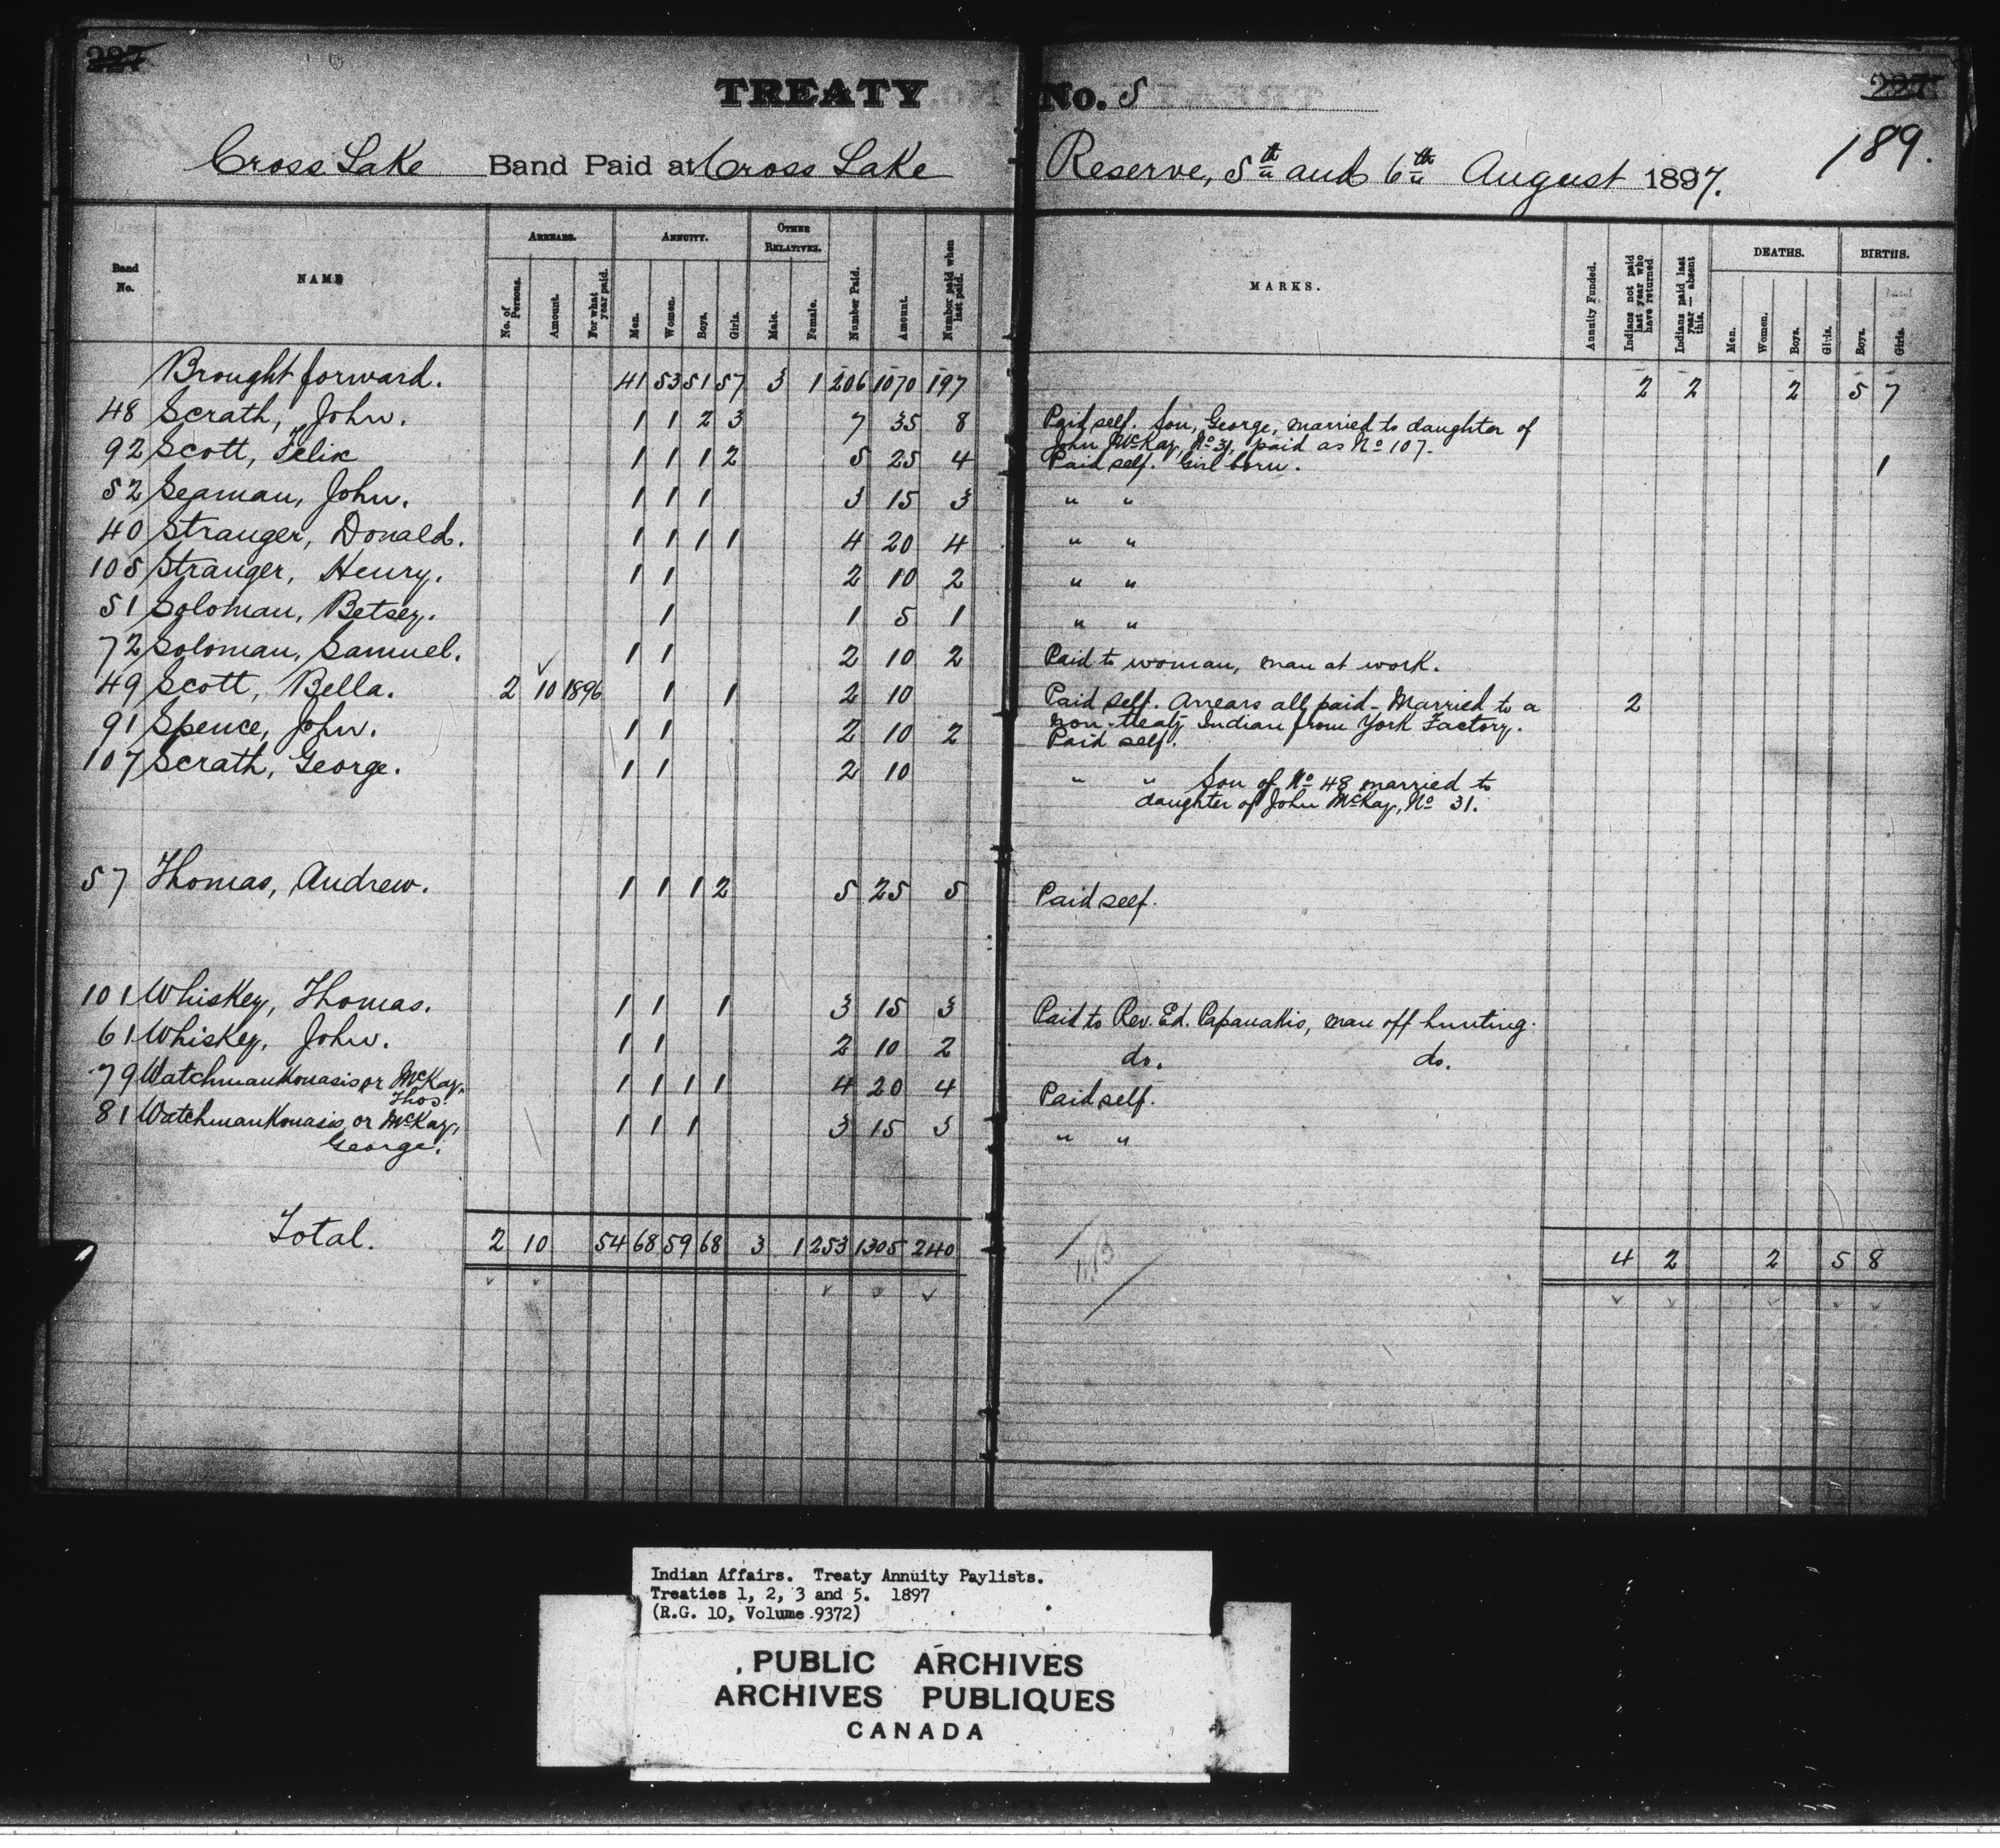 227 227
TREATY No. 5
189.
Cross Lake Band Paid at Cross Lake Reserve, 5th and 6th August 1897.
Band No. NAME ARREARS. No. of Persons. Amount. For what year paid. ANNUITY. Men. Women. Boys. Girls. OTHER RELATIVES. Male. Female. Number Paid. Amount. Number paid when last paid. MARKS. Annuity Funded. Indians not paid last year who have returned Indians paid last year — absent this. DEATHS. Men. Women. Boys. Girls. BIRTHS. Boys. Girls.
Brought forward. 41 53 51 57 3 1 206 1070 197 2 2 2 5 7
48 Scrath, John. 1 1 2 3 7 35 8 Paid self. Son, George, married to daughter of
John McKay, No 31, paid as No 107.
92 Scott, Felix 1 1 1 2 5 25 4 Paid self. Girl born. 1
52 Seaman, John. 1 1 1 3 15 3 " "
40 Stranger, Donald. 1 1 1 1 4 20 4 " "
105 Stranger, Henry. 1 1 2 10 2 " "
51 Soloman, Betsey. 1 1 5 1 " "
72 Soloman, Samuel. 1 1 2 10 2 Paid to woman, man at work.
49 Scott, Bella. 2 10 1896 1 1 2 10 Paid self. Arrears all paid - Married to a 2
non-treaty Indian from York Factory.
91 Spence, John. 1 1 2 10 2 Paid self.
107 Scrath, George. 1 1 2 10 " " Son of No 48 married to
daughter of John McKay, No 31.
57 Thomas, Andrew. 1 1 1 2 5 25 5 Paid self.
101 Whiskey, Thomas. 1 1 1 3 15 3 Paid to Rev. Ed. Papanakis, man off hunting.
61 Whiskey, John. 1 1 2 10 2 do. do.
79 Watchmankonasis or McKay, Thos. 1 1 1 1 4 20 4 Paid self.
81 Watchmankonasis or McKay, 1 1 1 3 15 3 " "
George.
Total. 2 10 54 68 59 68 3 1 253 1305 240 4 2 2 5 8
Indian Affairs. Treaty Annuity Paylists.
Treaties 1, 2, 3 and 5. 1897
(R.G. 10, Volume 9372)
PUBLIC ARCHIVES
ARCHIVES PUBLIQUES
CANADA